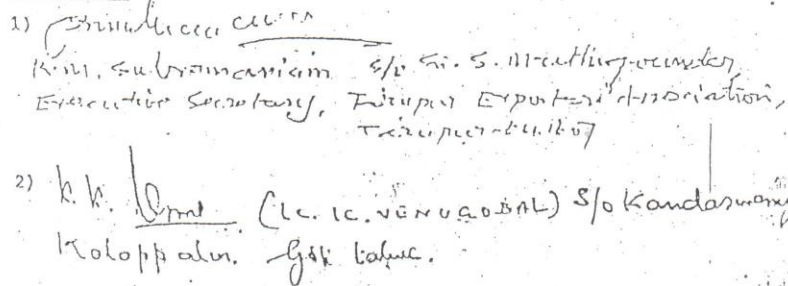 1)
K.M. Subramaniam S/o Sri. S. Muthugounder,
Executive Secretary, Tirupur Exporters' Association,
Tirupur
2) K.K. (K. K. VENUGOPAL) S/o Kandaswamy
Kolappalur. Gobi Taluk.